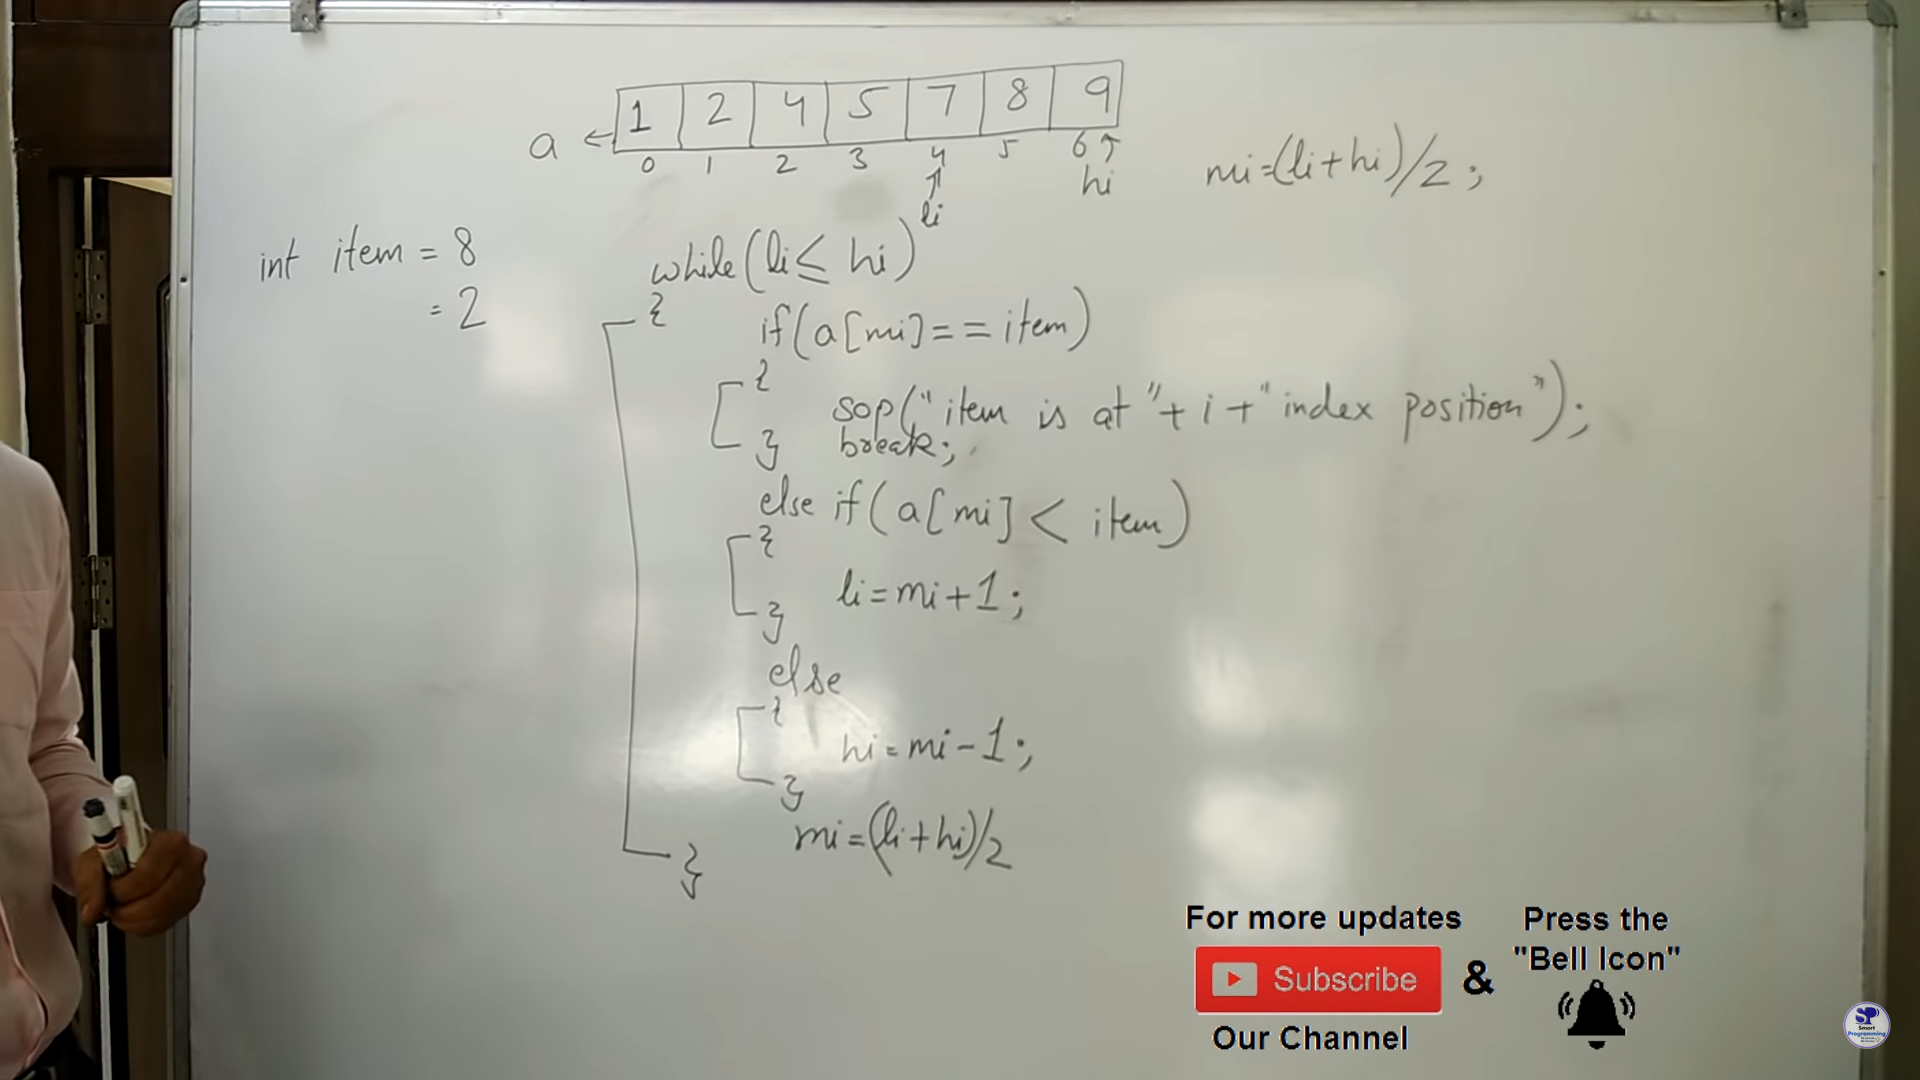 1 2 4 5 7 8 9
a ← 0 1 2 3 4 5 6
hi
li
mi=(li+hi)/2;
int item = 8
= 2
while(li≤ hi)
{
if(a[mi]==item)
{
sop("item is at "+i+" index position");
break;
}
else if(a[mi] < item)
{
li=mi+1;
}
else
{
hi=mi-1;
}
mi=(li+hi)/2
}
For more updates
Subscribe
Our Channel
&
Press the
"Bell Icon"
SP
Smart
Programming